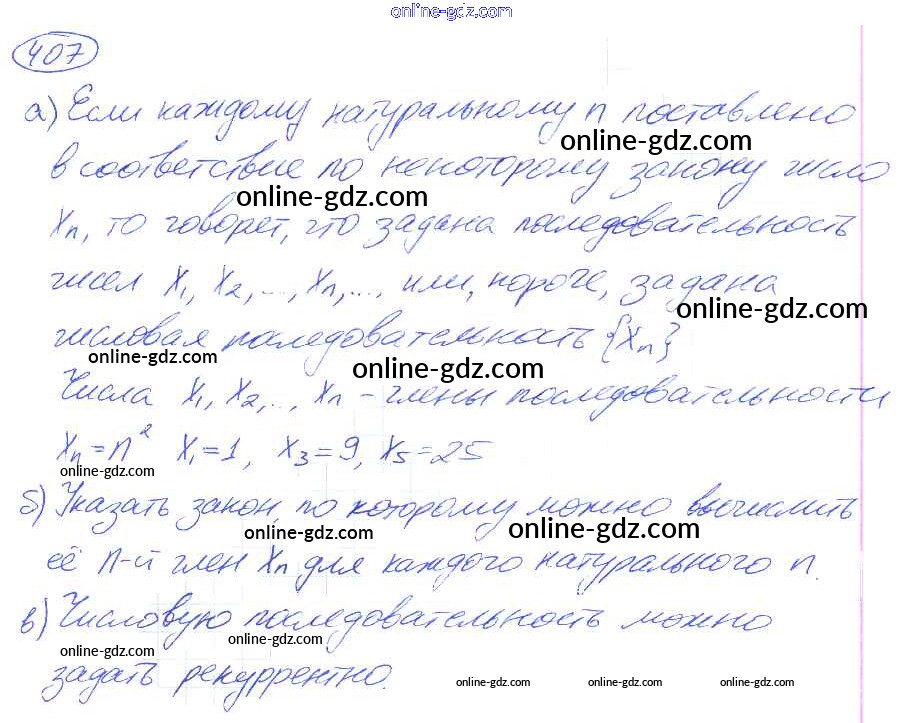 online-gdz.com
407
а) Если каждому натуральному n поставлено
online-gdz.com
в соответствие по некоторому закону число
online-gdz.com
xn, то говорят, что задана последовательность
чисел x1, x2, ..., xn, ..., или, короче, задана
online-gdz.com
числовая последовательность {xn}
online-gdz.com
online-gdz.com
Числа x1, x2, .., xn - члены последовательности
xn = n² x1 = 1, x3 = 9, x5 = 25
online-gdz.com
б) Указать закон, по которому можно вычислить
online-gdz.com online-gdz.com
её n-й член xn для каждого натурального n.
в) Числовую последовательность можно
online-gdz.com online-gdz.com
задать рекуррентно.
online-gdz.com online-gdz.com online-gdz.com